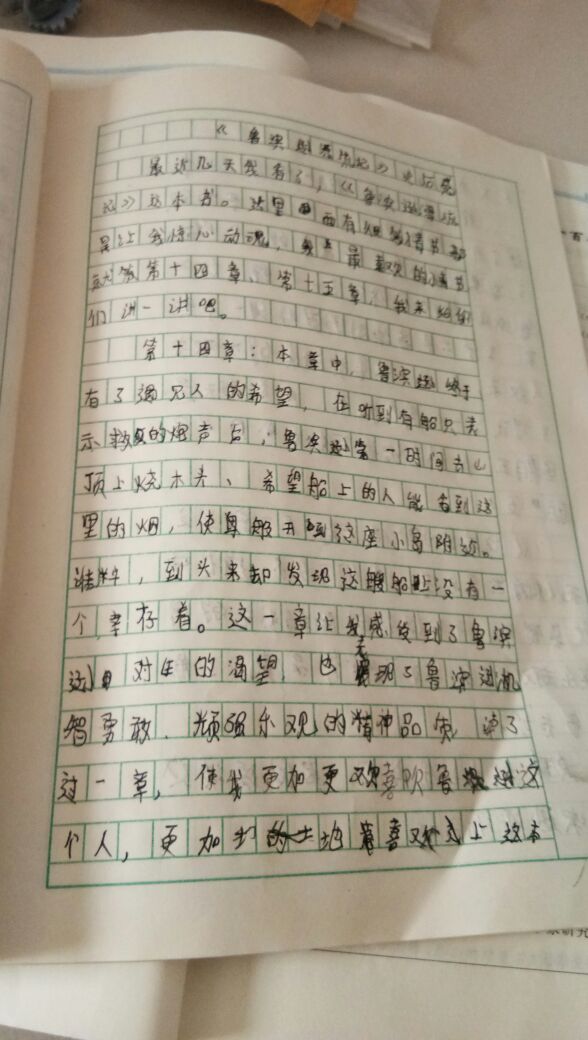 《鲁滨逊漂流记》
最近几天我看了,《鲁滨逊漂流
记》这本书。这里面有
让我惊心动魄,我最喜欢的情节
第十四章、第十五章,我来给你
们讲一讲吧。
第十四章:本章中,鲁滨逊终于
有了遇见人的希望,在听到有船只表
示救的炮声后,鲁滨逊第一时间去山
顶上烧木头、希望船上的人能看到这
里的烟,使船开到这座小岛附近。
谁料,到头来却发现这艘船上没有一
个幸存者。这一章让我感受到了鲁滨
逊对生的渴望,也表现了鲁滨逊机
智勇敢、顽强乐观的精神品质,读了
这一章,使我更加喜欢鲁滨逊这
个人,更加地喜欢上这本